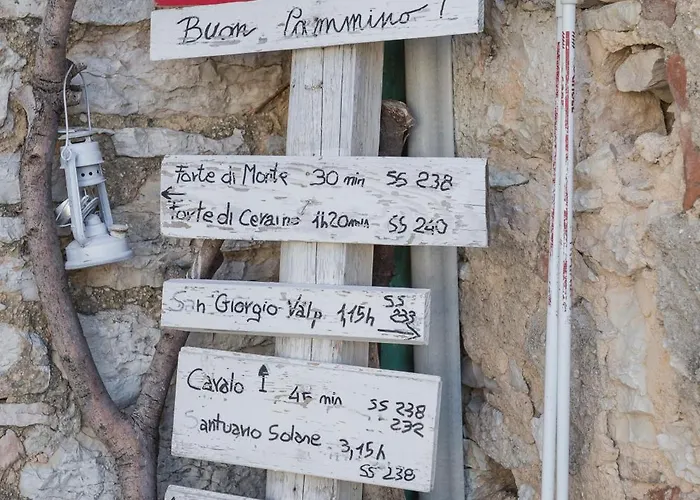 Buon Cammino!
Forte di Monte 30 min SS 238
Forte di Ceraino 1h20min SS 240
San Giorgio Valp 1,15h SS 233
Cavalo 45 min SS 238
232
Santuario Solane 3,15h
SS 238